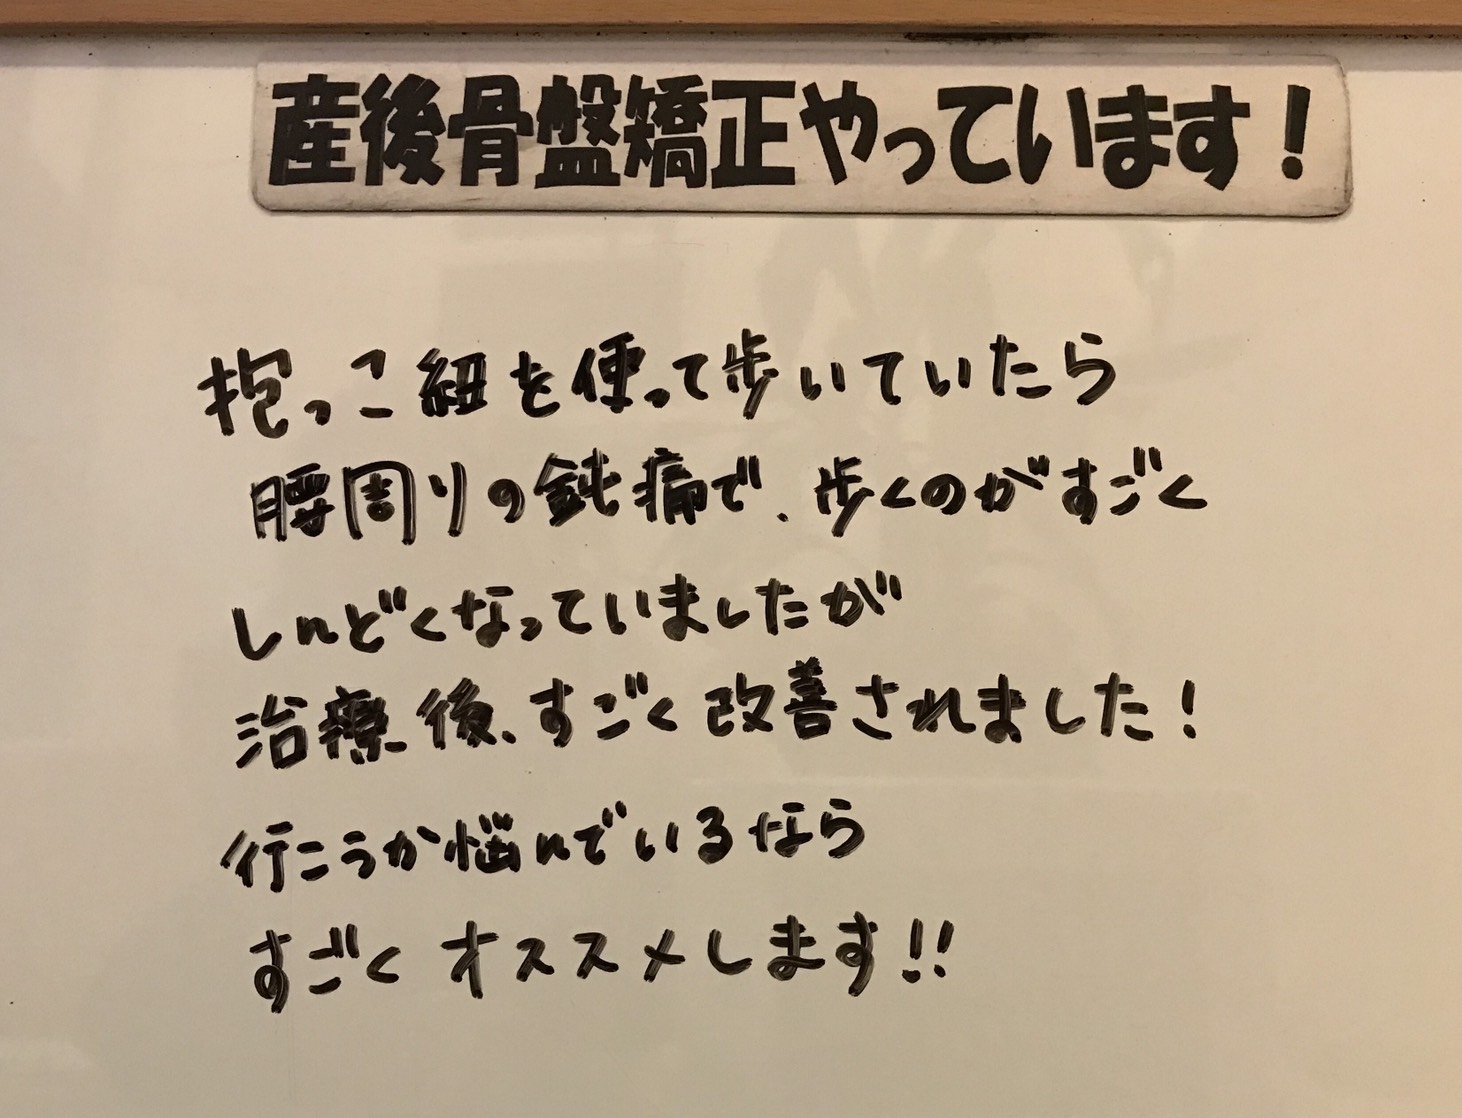 産後骨盤矯正やっています!
抱っこ紐を使って歩いていたら
腰周りの鈍痛で、歩くのがすごく
しんどくなっていましたが
治療後、すごく改善されました!
行こうか悩んでいるなら
すごくオススメします!!